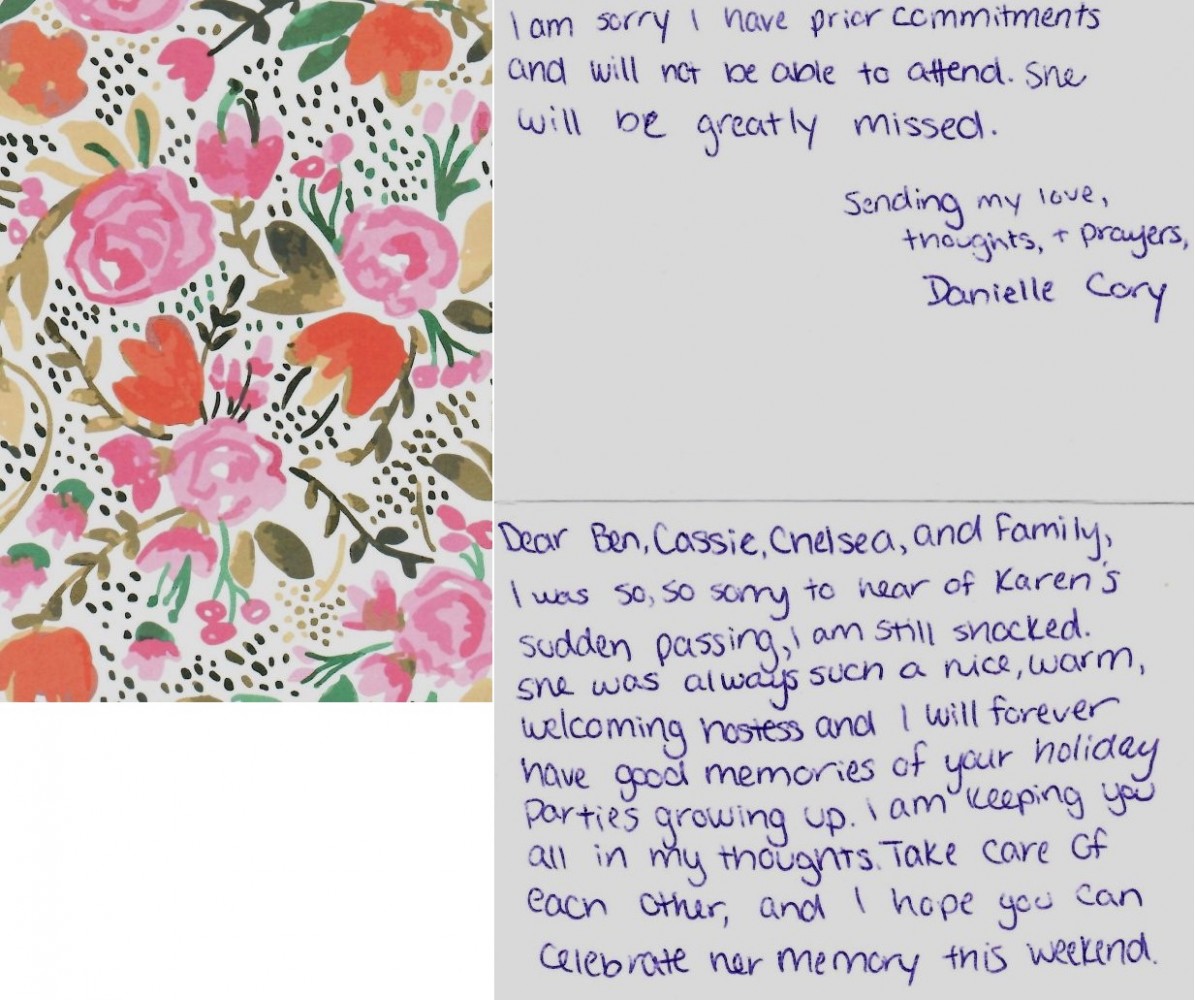 Dear Ben, Cassie, Chelsea, and Family,
I was so, so sorry to hear of Karen's
sudden passing, I am still shocked.
She was always such a nice, warm,
welcoming hostess and I will forever
have good memories of your holiday
parties growing up. I am keeping you
all in my thoughts. Take care of
each other, and I hope you can
celebrate her memory this weekend.
I am sorry I have prior commitments
and will not be able to attend. She
will be greatly missed.
Sending my love,
thoughts, + prayers,
Danielle Cory